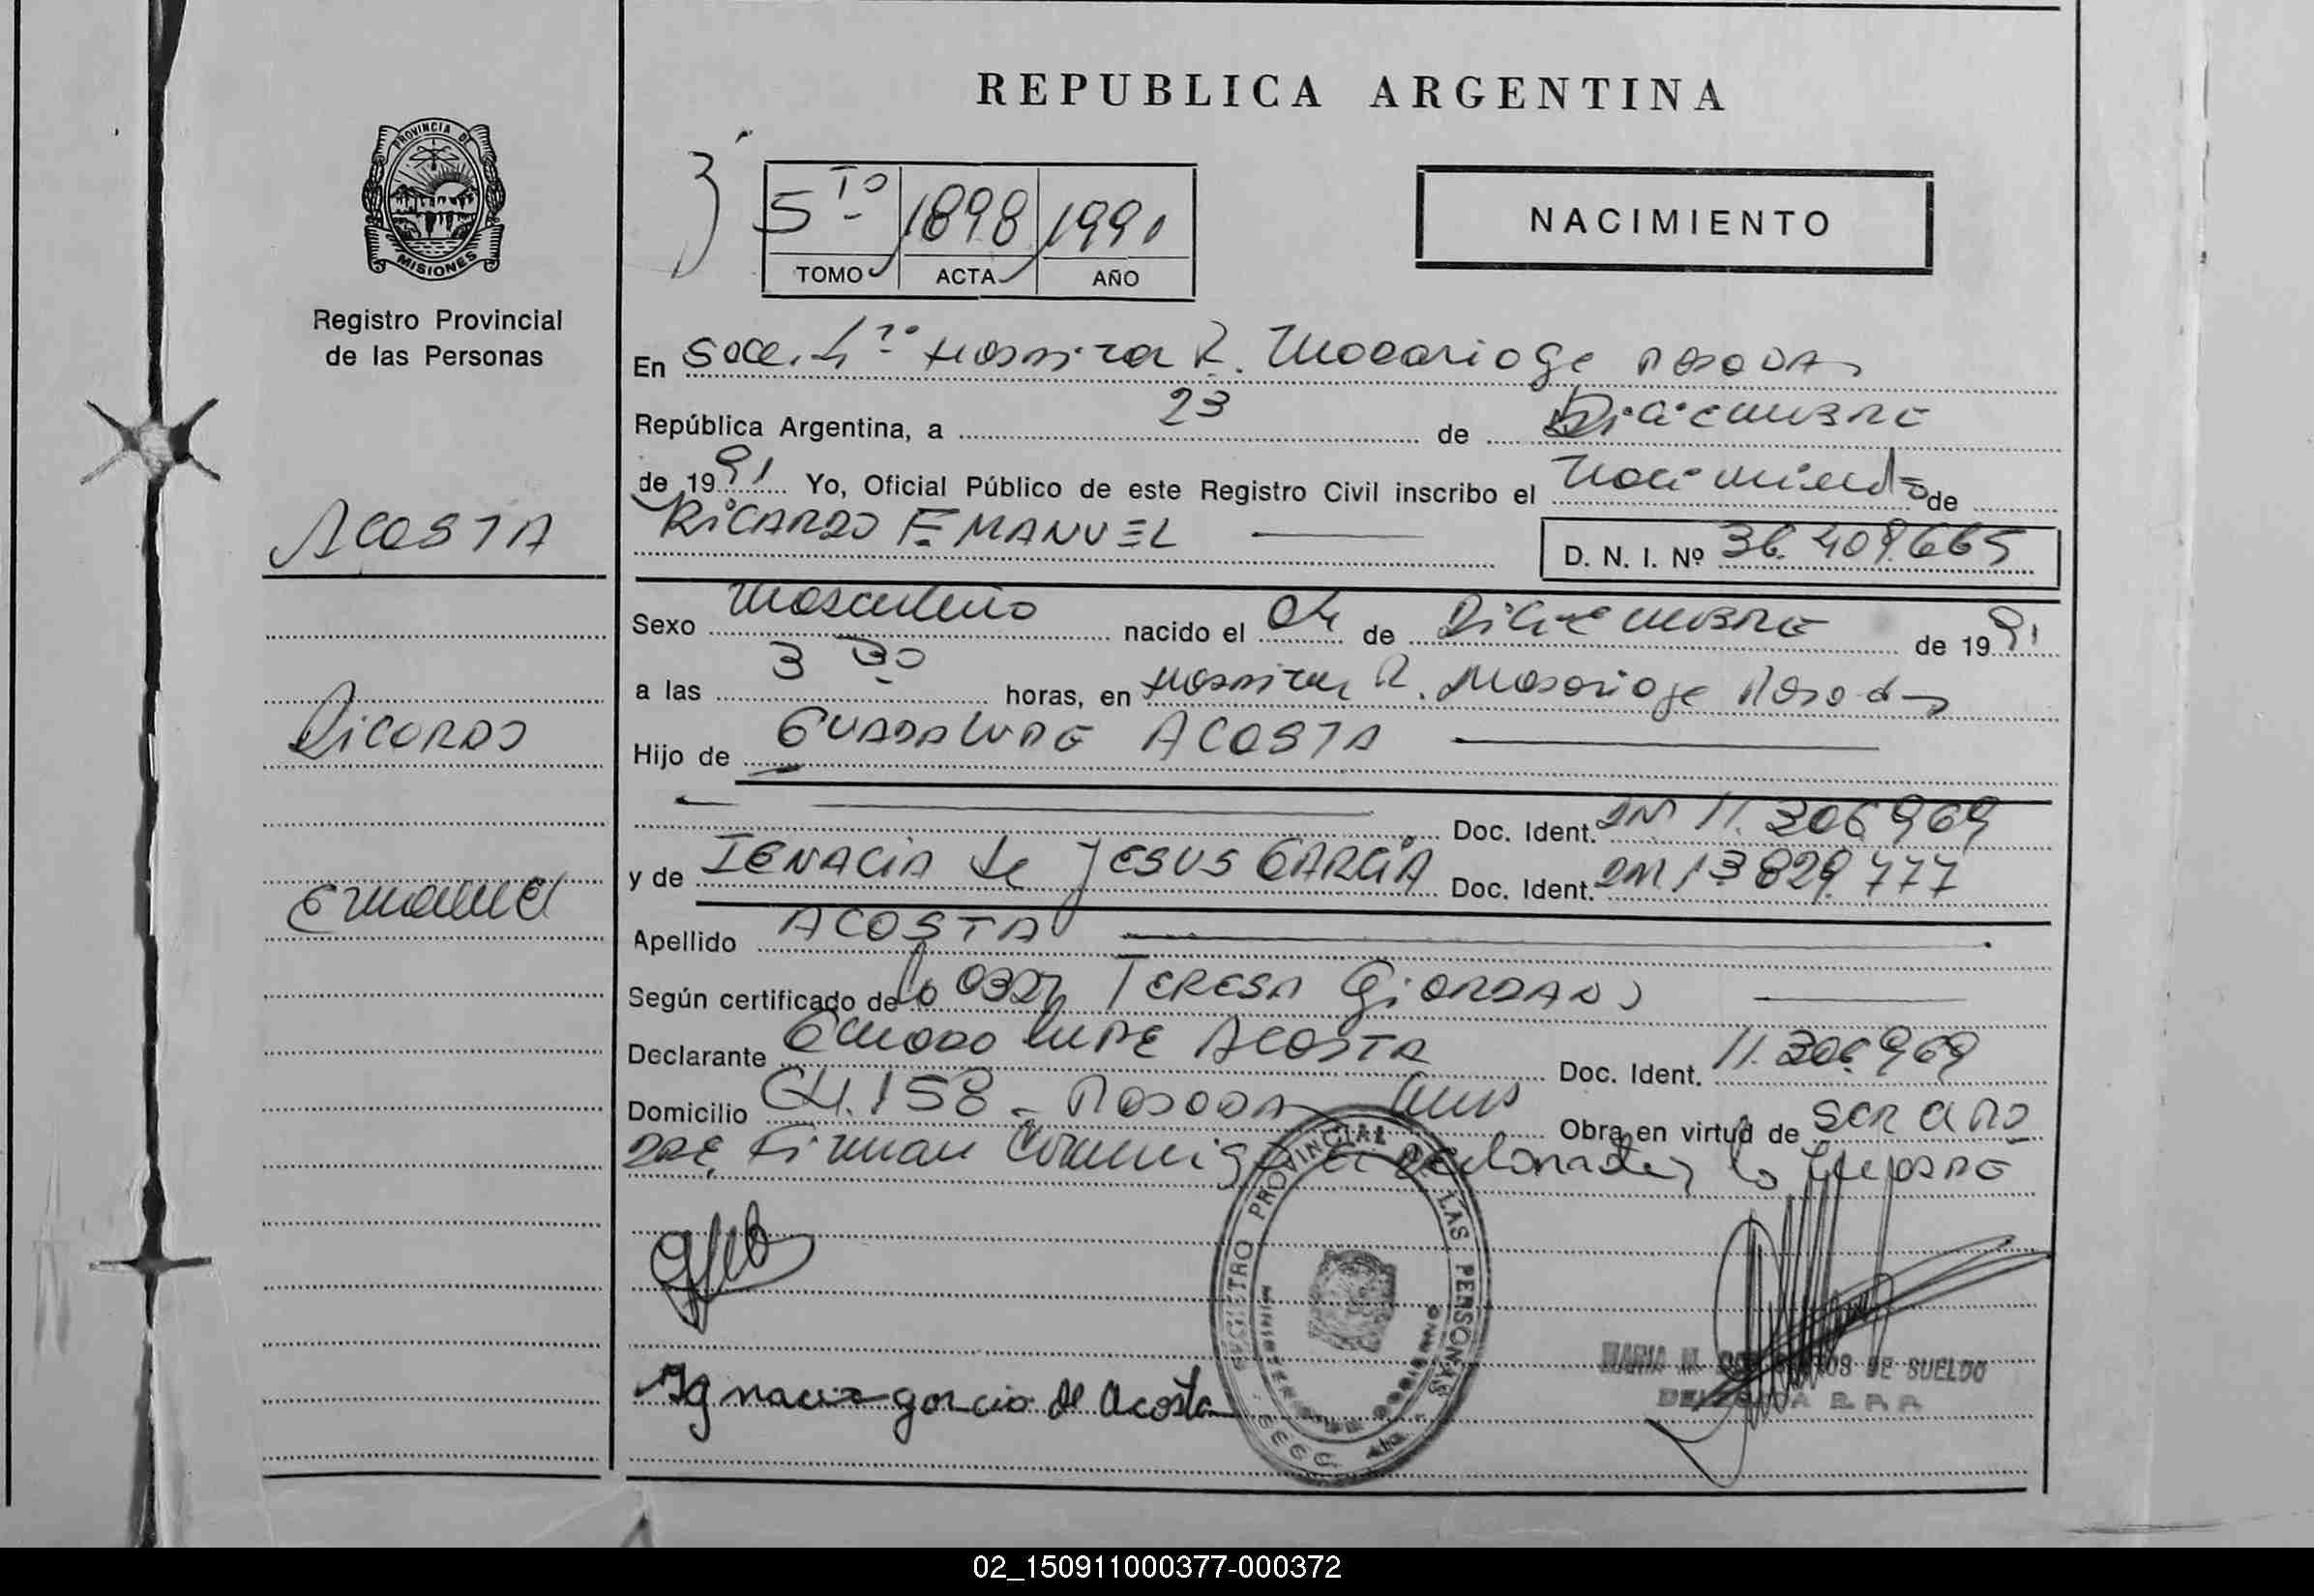 REPUBLICA ARGENTINA
PROVINCIA DE
MISIONES
Registro Provincial
de las Personas
5 TO 1898 1991
TOMO ACTA AÑO
NACIMIENTO
En Secc. 4ta Hospital R. Madariaga Posadas
República Argentina, a 23 de Diciembre
de 1991 Yo, Oficial Público de este Registro Civil inscribo el Nacimiento de
RICARDO EMANUEL
D. N. I. Nº 36.409.665
ACOSTA
Ricardo
Emanuel
Sexo Masculino nacido el 04 de Diciembre de 1991
a las 3 30 horas, en Hospital R. Madariaga Posadas
Hijo de GUADALUPE ACOSTA
Doc. Ident. DNI 11.306969
y de IGNACIA de JESUS GARCIA Doc. Ident. DNI 13829.777
Apellido ACOSTA
Según certificado de TERESA GIORDANO
Declarante Guadalupe ACOSTA Doc. Ident. 11.306.969
Domicilio CH.158 - Posadas Obra en virtud de SER EL PA
DRE, Firman conmigo el declarante y la Madre
Ignacia garcia de acosta
REGISTRO PROVINCIAL DE LAS PERSONAS
MINISTERIO DE GOBIERNO
MARIA M. DE SUELDO
DELEGADA R. P. P.
02_150911000377-000372